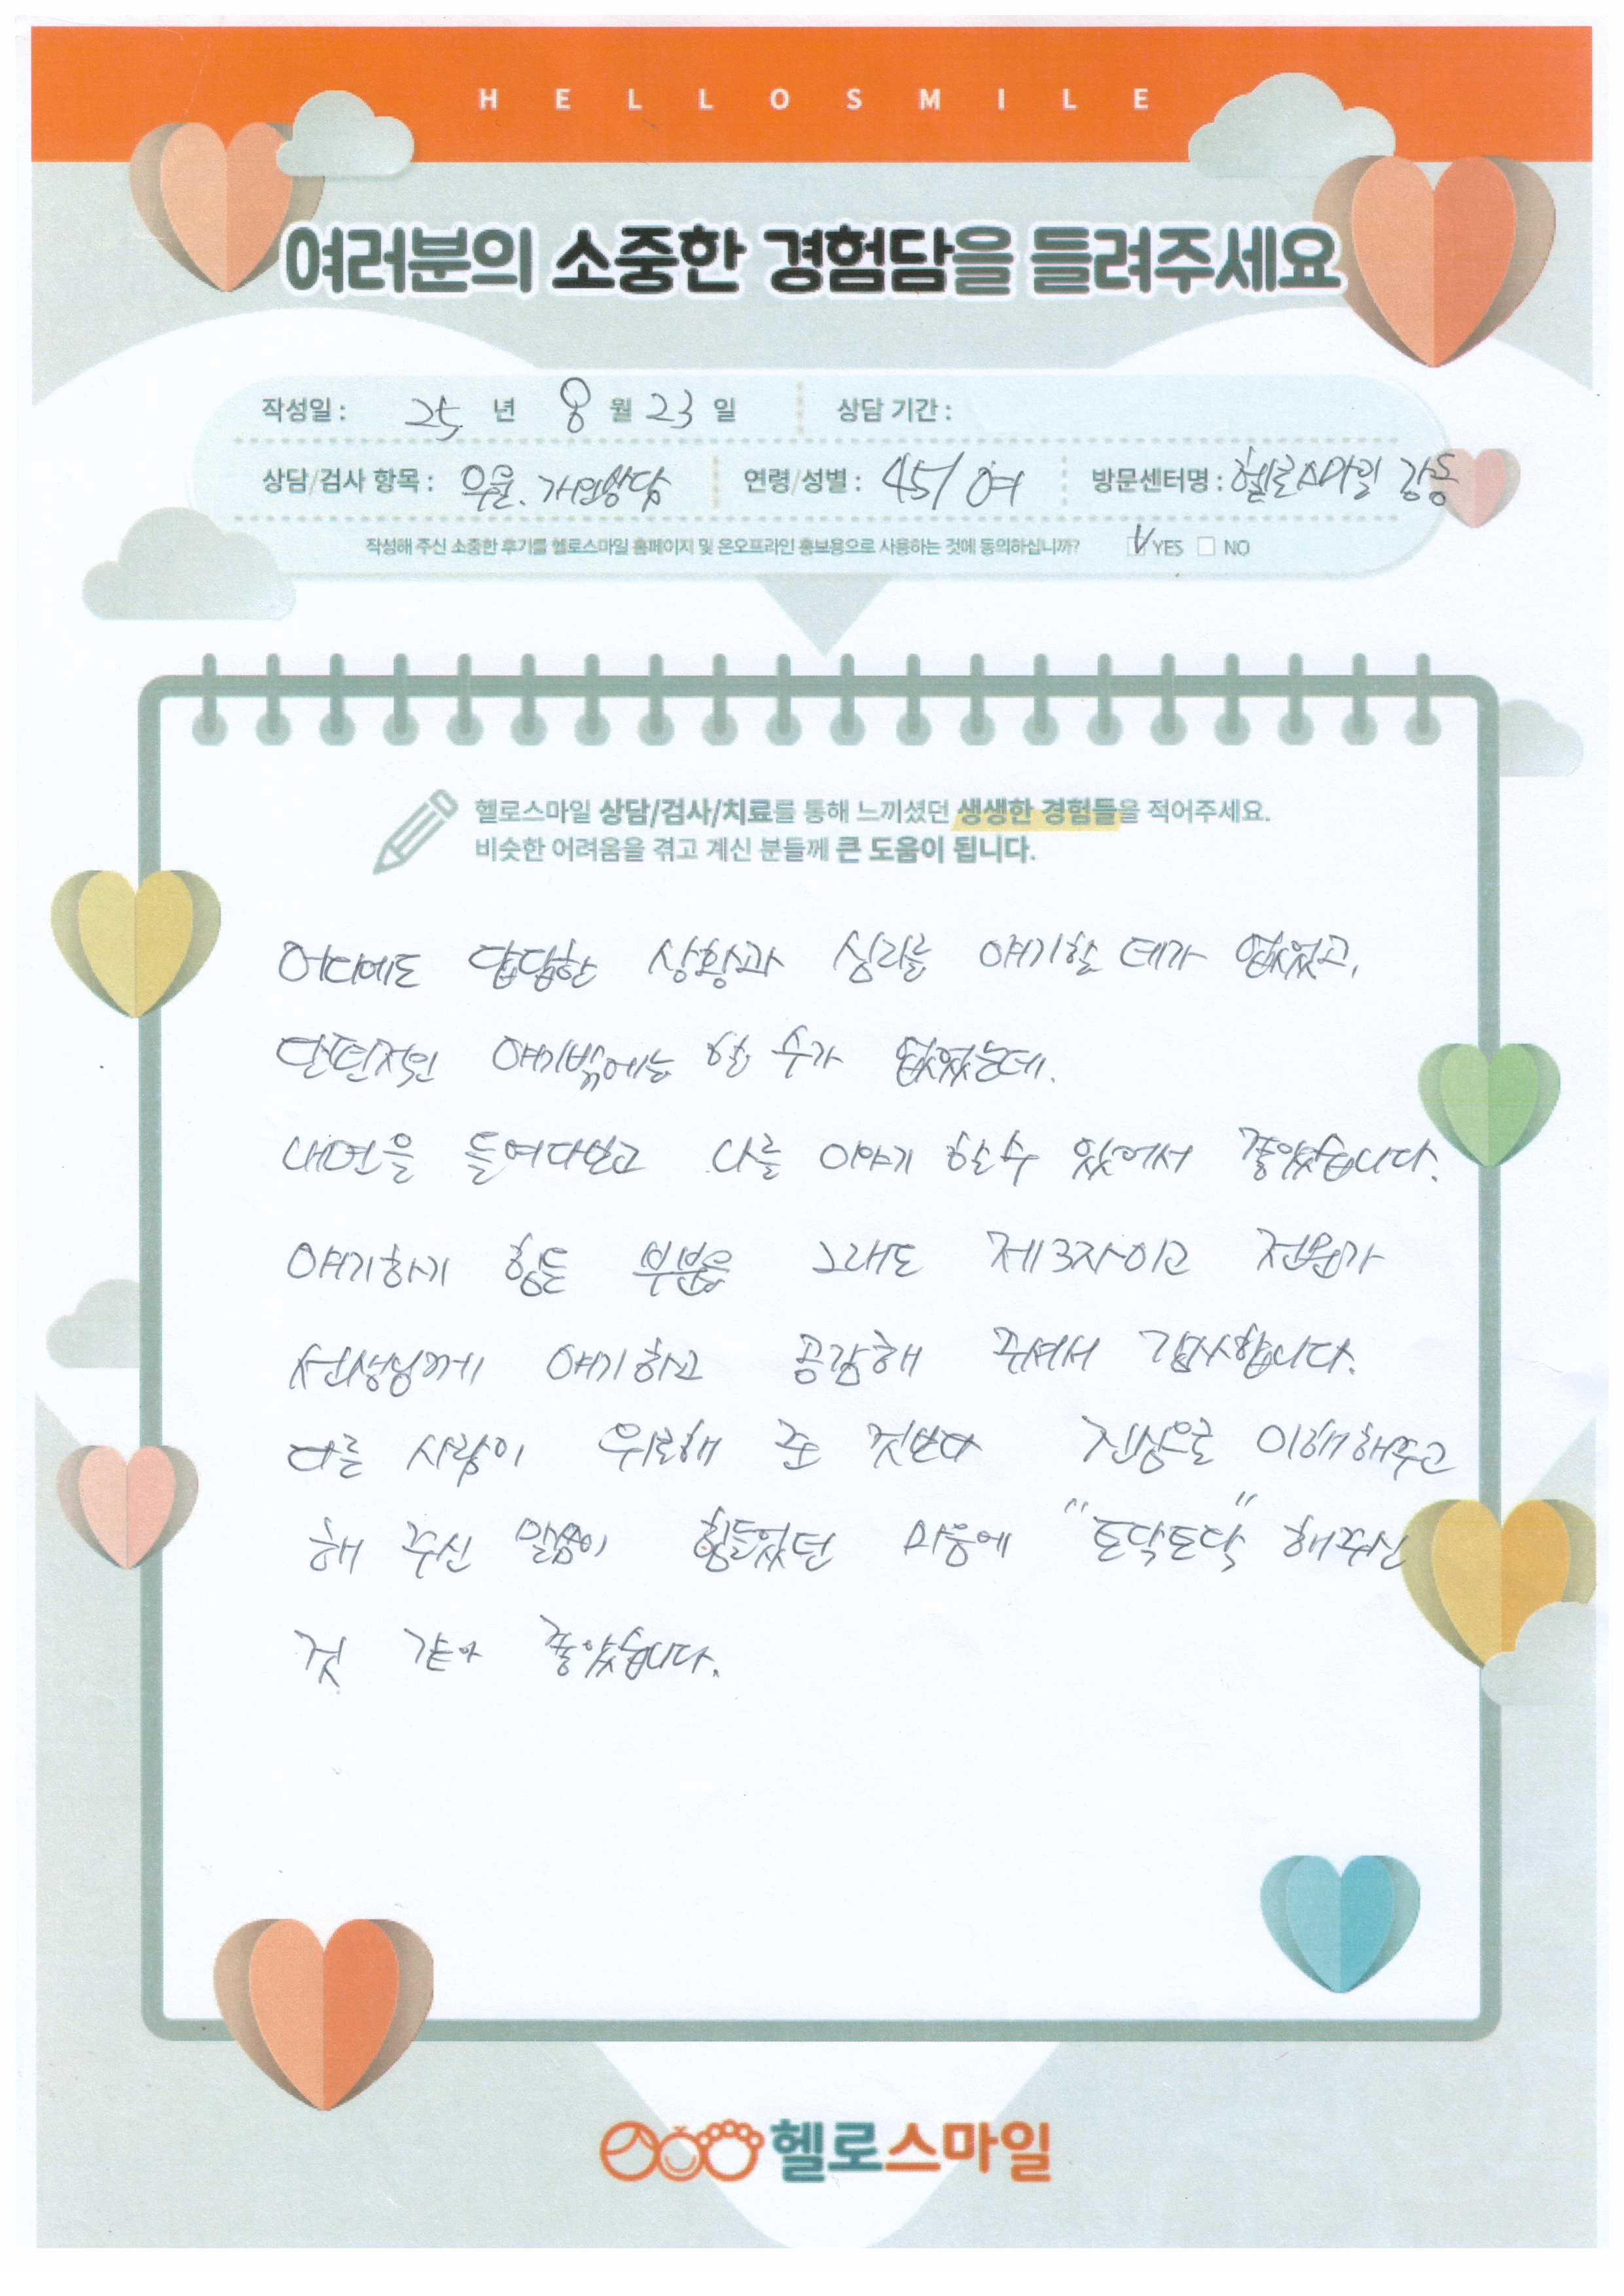 HELLOSMILE
여러분의 소중한 경험담을 들려주세요
작성일 : 25 년 8 월 23 일 상담 기간 :
상담/검사 항목 : 우울. 개인상담 연령/성별 : 45/ 여 방문센터명 : 헬로스마일 강동
작성해 주신 소중한 후기를 헬로스마일 홈페이지 및 온오프라인 홍보용으로 사용하는 것에 동의하십니까? V YES NO
헬로스마일 상담/검사/치료를 통해 느끼셨던 생생한 경험들을 적어주세요.
비슷한 어려움을 겪고 계신 분들께 큰 도움이 됩니다.
어디에도 답답한 상황과 심리를 얘기할 데가 없었고,
단편적인 얘기밖에는 할 수가 없었는데.
내면을 들여다보고 나를 이야기 할 수 있어서 좋았습니다.
얘기하기 힘든 부분을 그래도 제3자이고 전문가
선생님께 얘기하고 공감해 주셔서 감사합니다.
다른 사람이 위로해 준 것보다 진심으로 이해해주고
해 주신 말씀이 힘들었던 마음에 "토닥토닥" 해주신
것 같아 좋았습니다.
헬로스마일